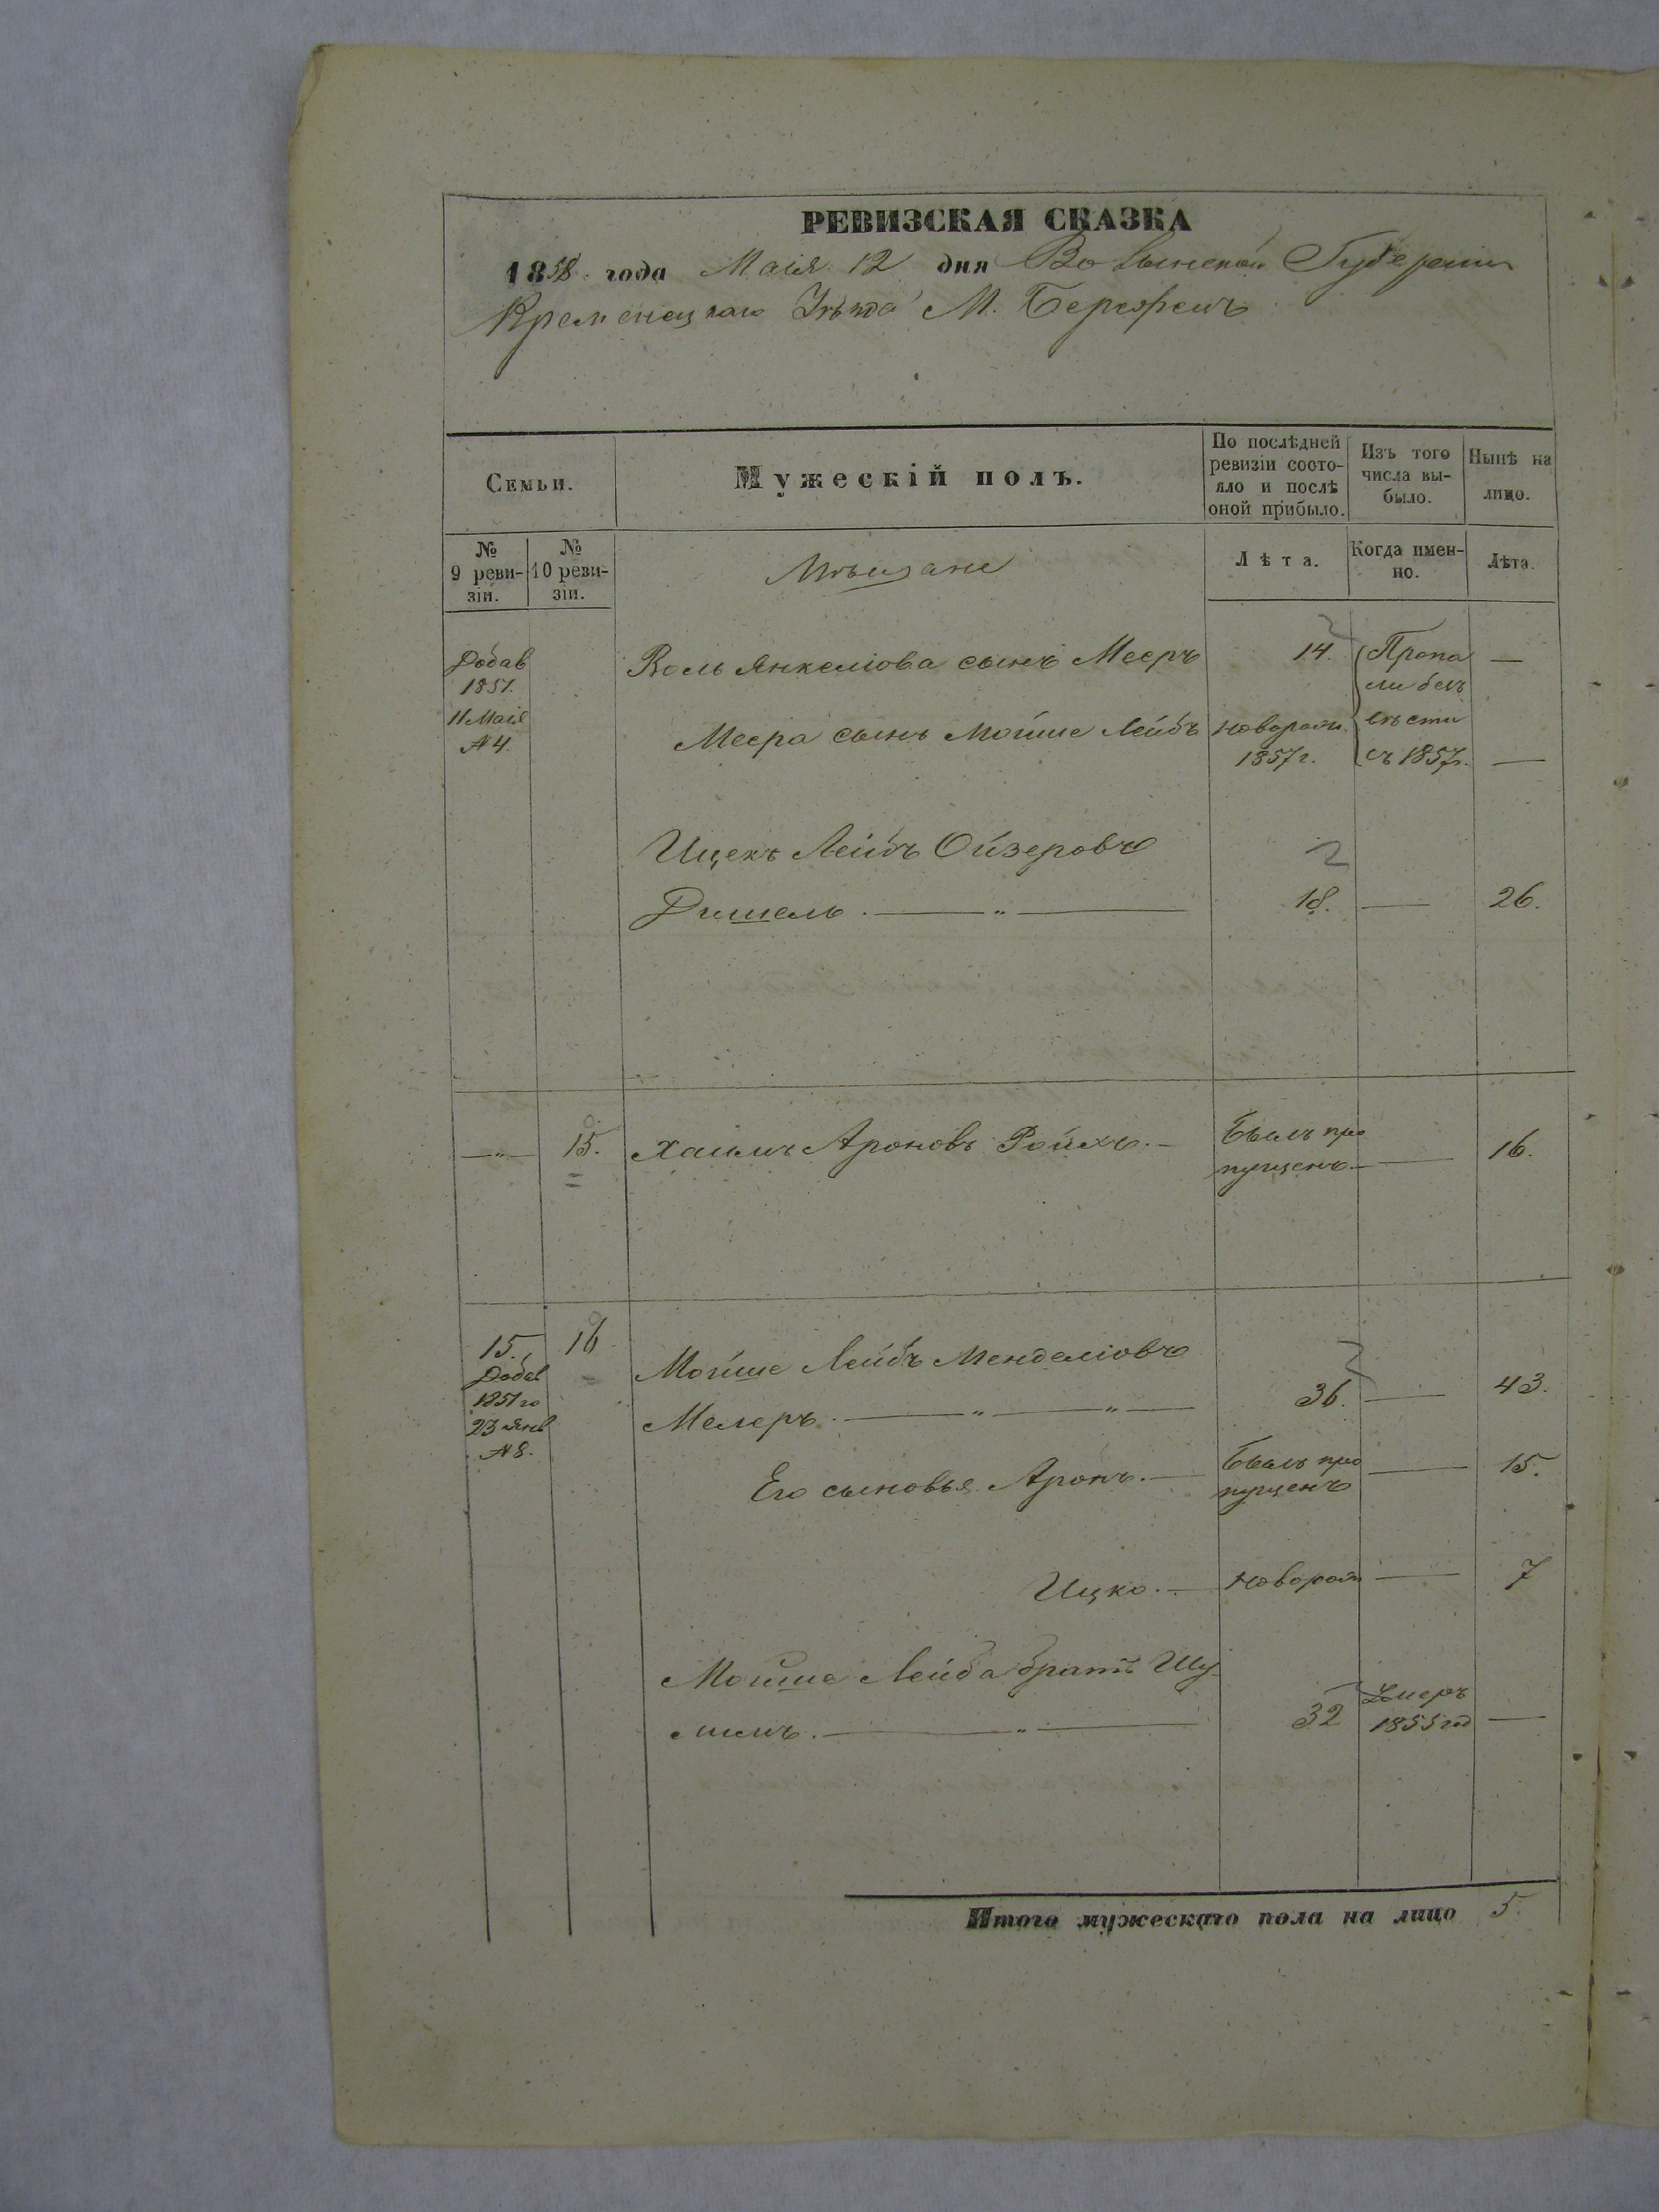 РЕВИЗСКАЯ СКАЗКА
1858 года Маія 12 дня Волынской Губерніи
Кременецкаго Уѣзда М. Бережецъ
Семьи.
Мужескій полъ.
По послѣдней
ревизіи состо-
яло и послѣ
оной прибыло.
Изъ того
числа вы-
было.
Нынѣ на
лицо.
№
9 реви-
зіи.
№
10 реви-
зіи.
Мѣщане
Лѣта.
Когда имен-
но.
Лѣта.
Добав
1851.
11 Маія
№ 4.
Воль Янкеліова сынъ Мееръ 14. Пропа —
ли безъ
Меера сынъ Мойше Лейбъ новорож. вѣсти
1857 г. съ 1857г. —
Ицекъ Лейбъ Ойзеровъ
Дишель. — " — 18. — 26.
— " — 15. Хаимъ Ароновъ Ройхъ. — Былъ про
пущенъ — 16.
15. 16
Добав
1851 го
23 Янв
№ 8.
Мойше Лейбъ Менделіовъ
Мелеръ. — " — " — 36. — 43.
Его сыновья Аронъ. — Былъ про
пущенъ — 15.
Ицко. — новорож — 7
Мойше Лейба братъ Шу
лимъ. — " — 32 Умеръ
1855 год —
Итого мужескаго пола на лицо 5.